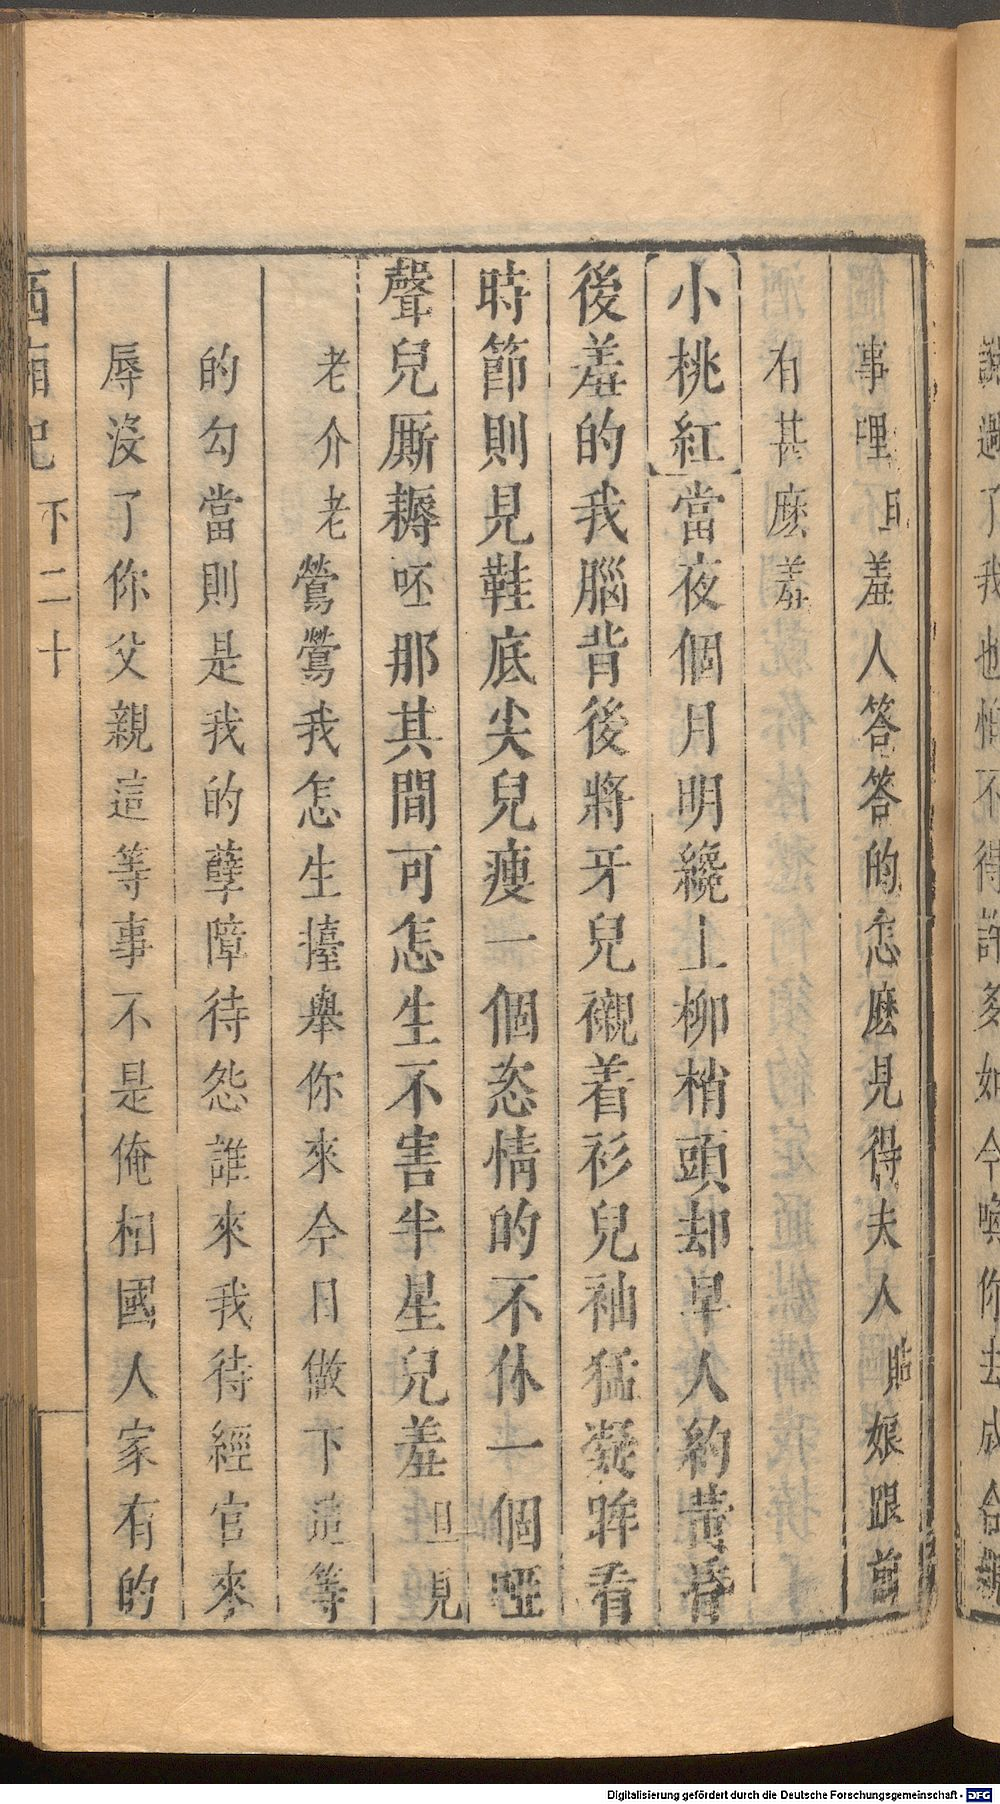 事哩旦羞人答答的怎麽見得夫人貼娘跟前
有甚麽羞
小桃紅當夜個月明纔上柳梢頭却早人約黃昏
後羞的我腦背後將牙兒襯着衫兒袖猛凝眸看
時節則見鞋底尖兒瘦一個恣情的不休一個啞
聲兒厮耨呸那其間可怎生不害半星兒羞旦見
老介老鶯鶯我怎生擡舉你來今日做下這等
的勾當則是我的孽障待怨誰來我待經官來
辱沒了你父親這等事不是俺相國人家有的
西廂記 下二十
Digitalisierung gefördert durch die Deutsche Forschungsgemeinschaft - DFG